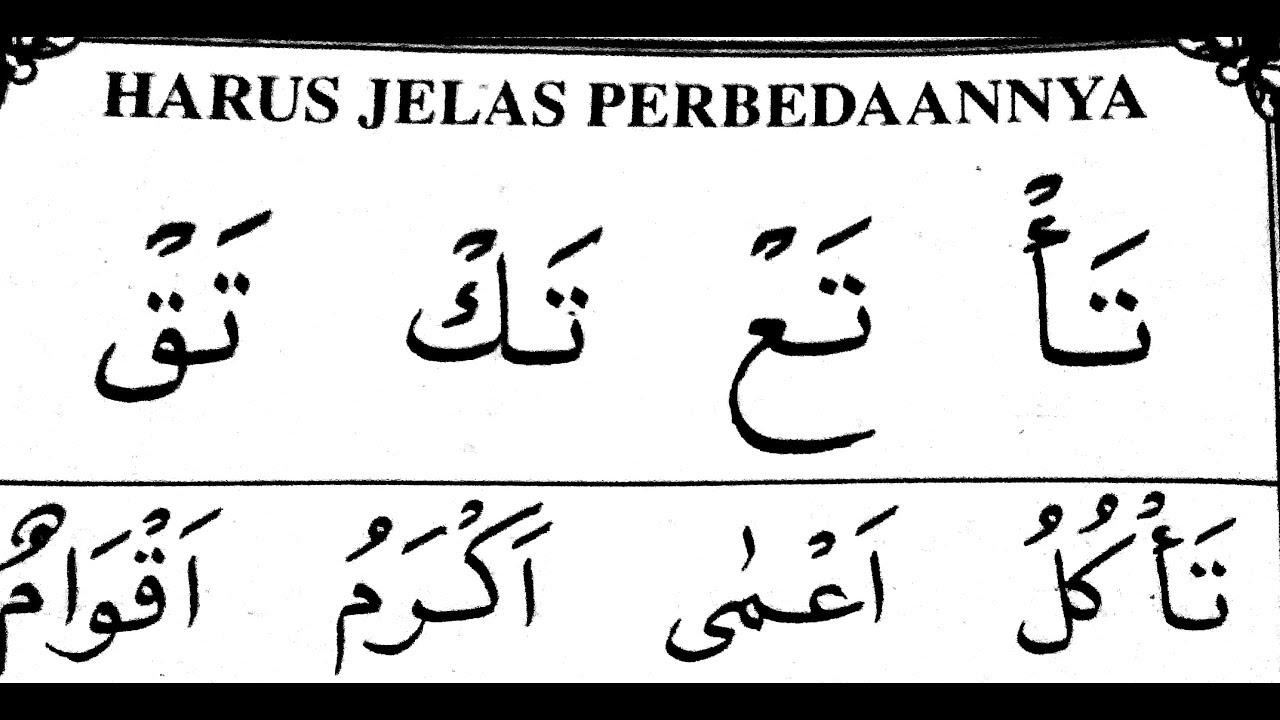 HARUS JELAS PERBEDAANNYA
تَأْ تَعْ تَكْ تَقْ
تَأْكُلُ اَعْمٰى اَكْرَمُ اَقْوَامٌ